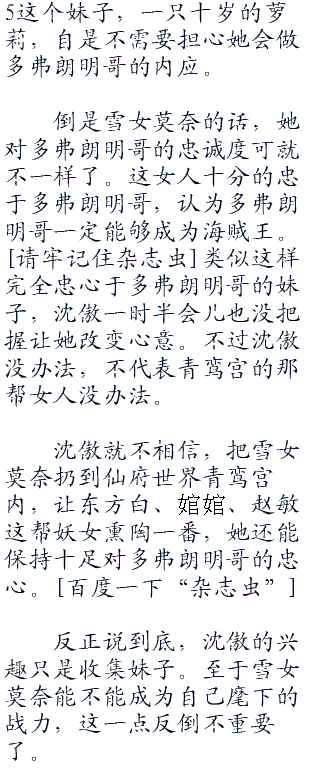 5这个妹子，一只十岁的萝
莉，自是不需要担心她会做
多弗朗明哥的内应。
倒是雪女莫奈的话，她
对多弗朗明哥的忠诚度可就
不一样了。这女人十分的忠
于多弗朗明哥，认为多弗朗
明哥一定能够成为海贼王。
[请牢记住杂志虫]类似这样
完全忠心于多弗朗明哥的妹
子，沈傲一时半会儿也没把
握让她改变心意。不过沈傲
没办法，不代表青鸾宫的那
帮女人没办法。
沈傲就不相信，把雪女
莫奈扔到仙府世界青鸾宫
内，让东方白、婠婠、赵敏
这帮妖女熏陶一番，她还能
保持十足对多弗朗明哥的忠
心。[百度一下“杂志虫”]
反正说到底，沈傲的兴
趣只是收集妹子。至于雪女
莫奈能不能成为自己麾下的
战力，这一点反倒不重要
了。